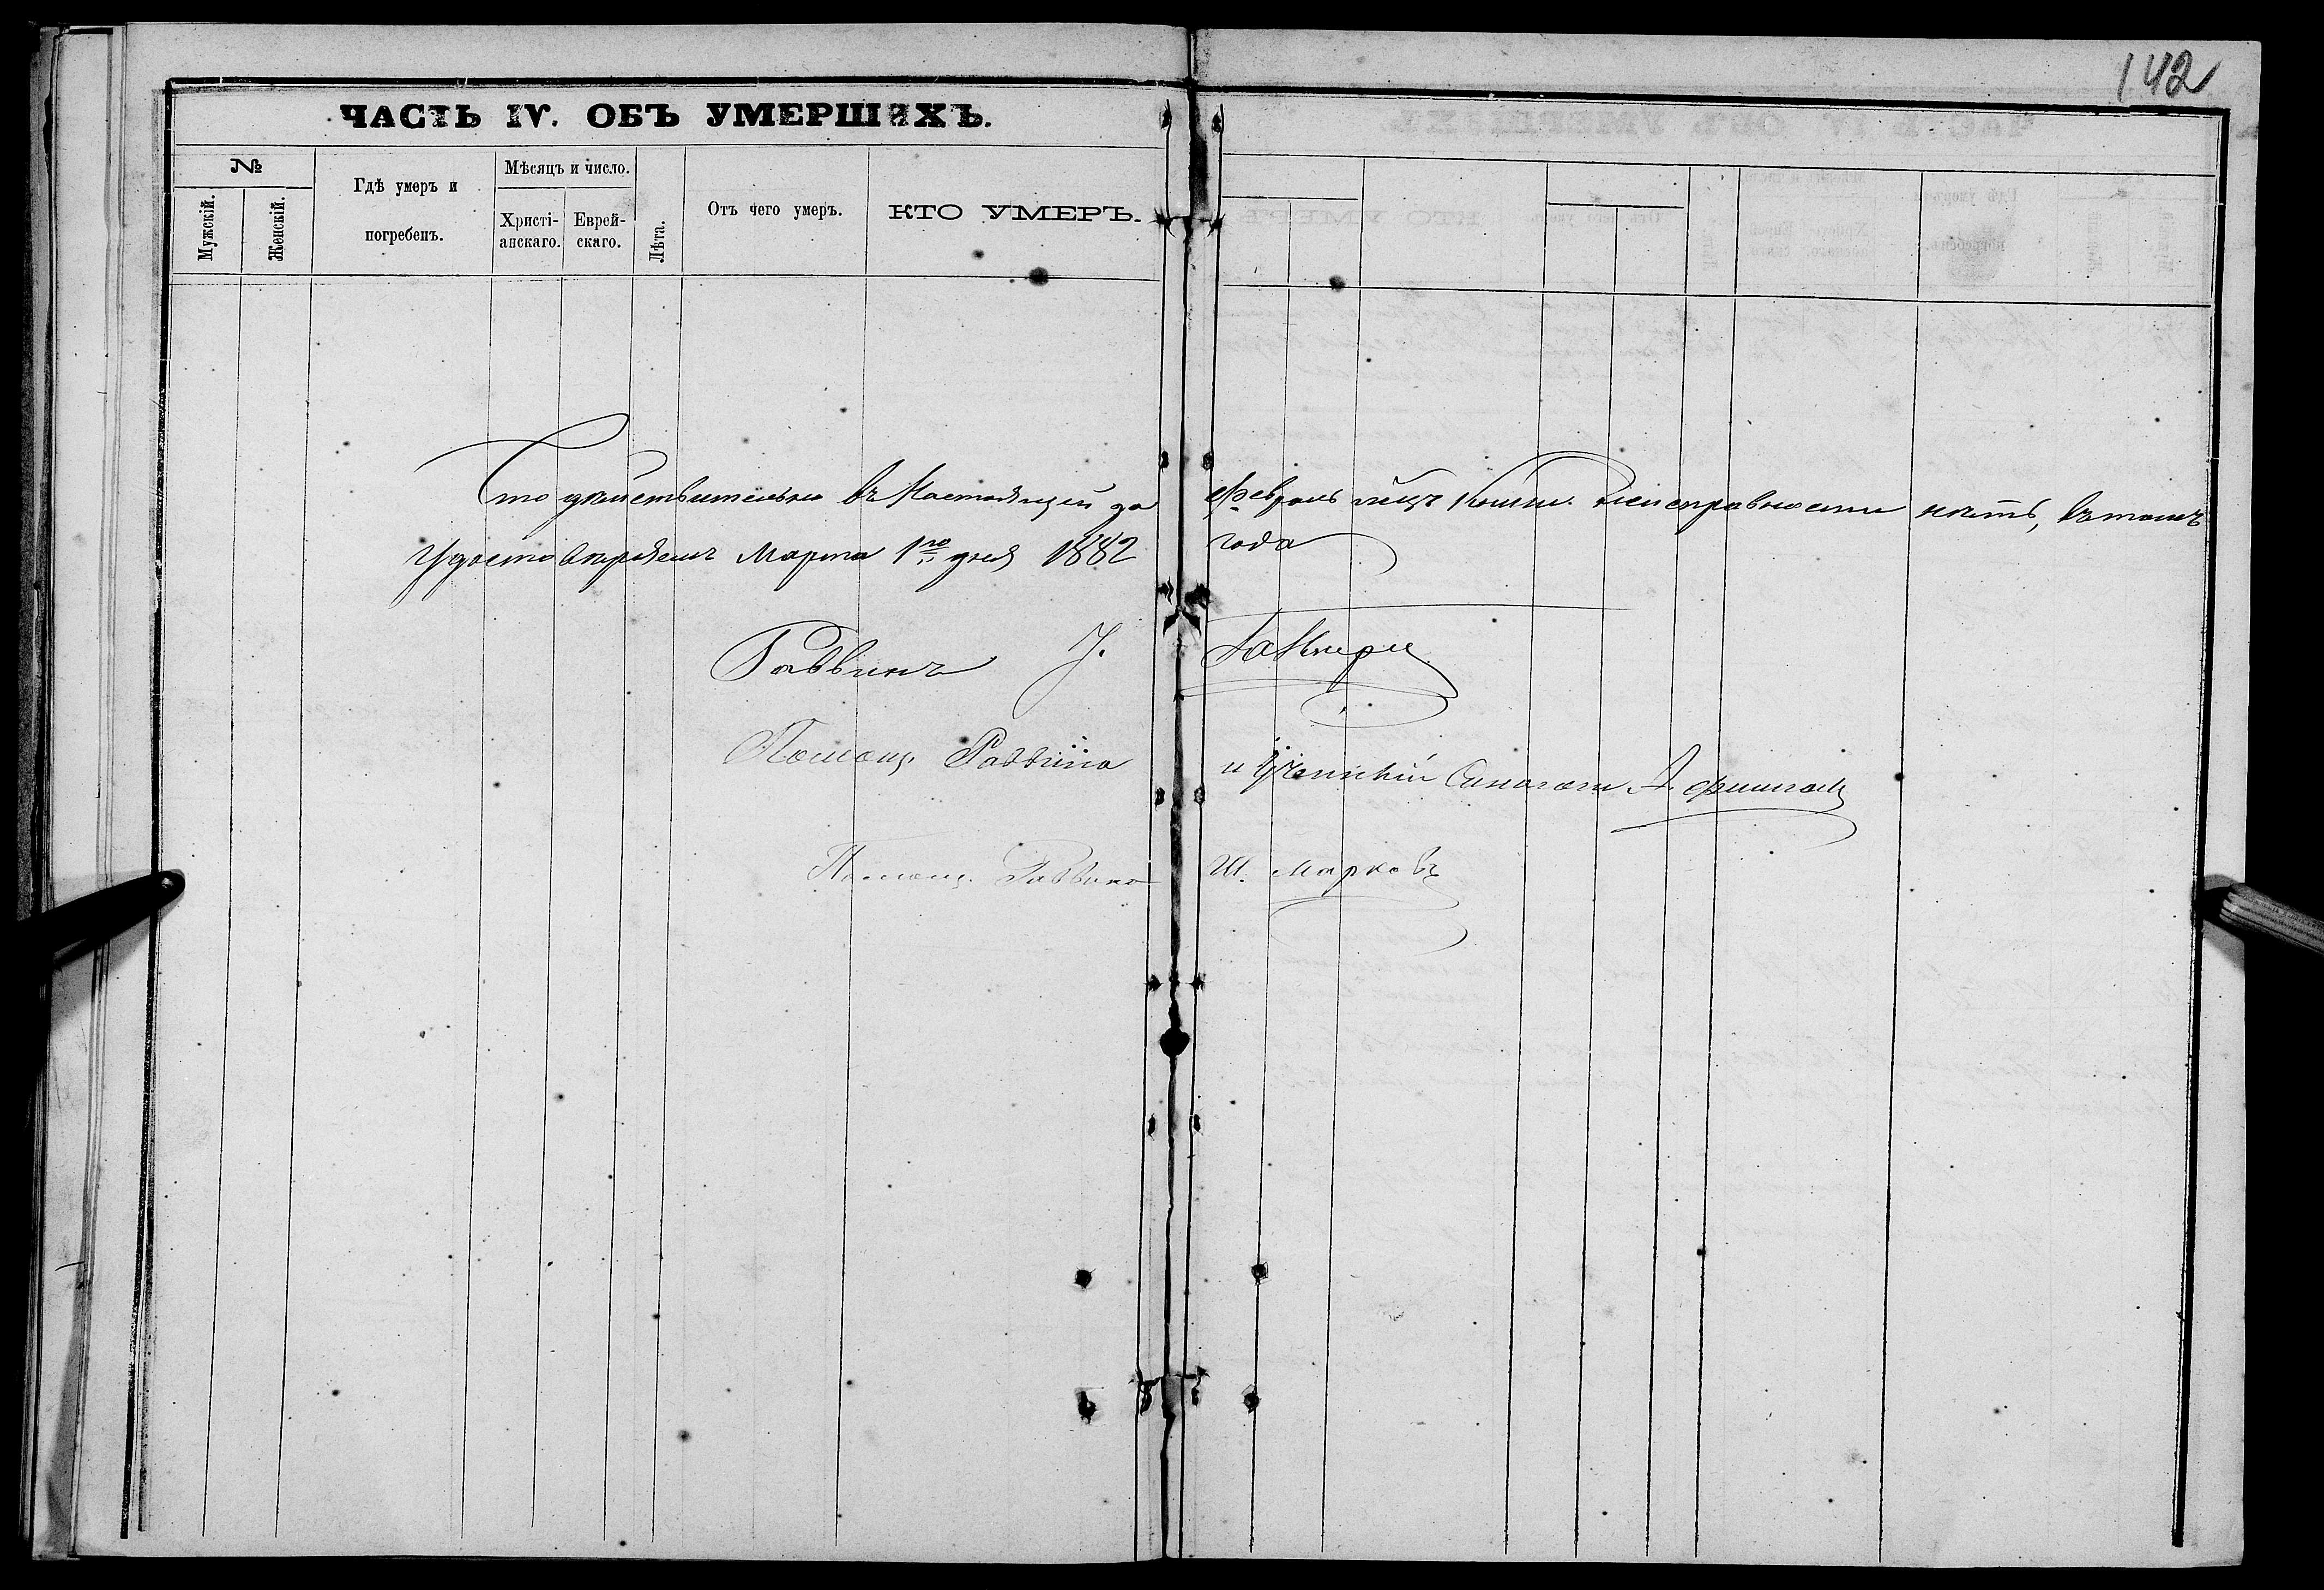 142
ЧАСТЬ IV. ОБЪ УМЕРШИХЪ.
№
Мужскій.
Женскій.
Гдѣ умеръ и
погребенъ.
Мѣсяцъ и число.
Христі-
анскаго.
Еврей-
скаго.
Лѣта.
Отъ чего умеръ.
КТО УМЕРЪ.
Что дѣйствительно въ настоящей за Февраль мѣцъ книги неисправности нѣтъ, въ томъ
удостовѣряемъ Марта 1го дня 1882 года
Раввинъ
Помощ. Раввина и Ученый
Помощ. Раввина Ш. Марковъ